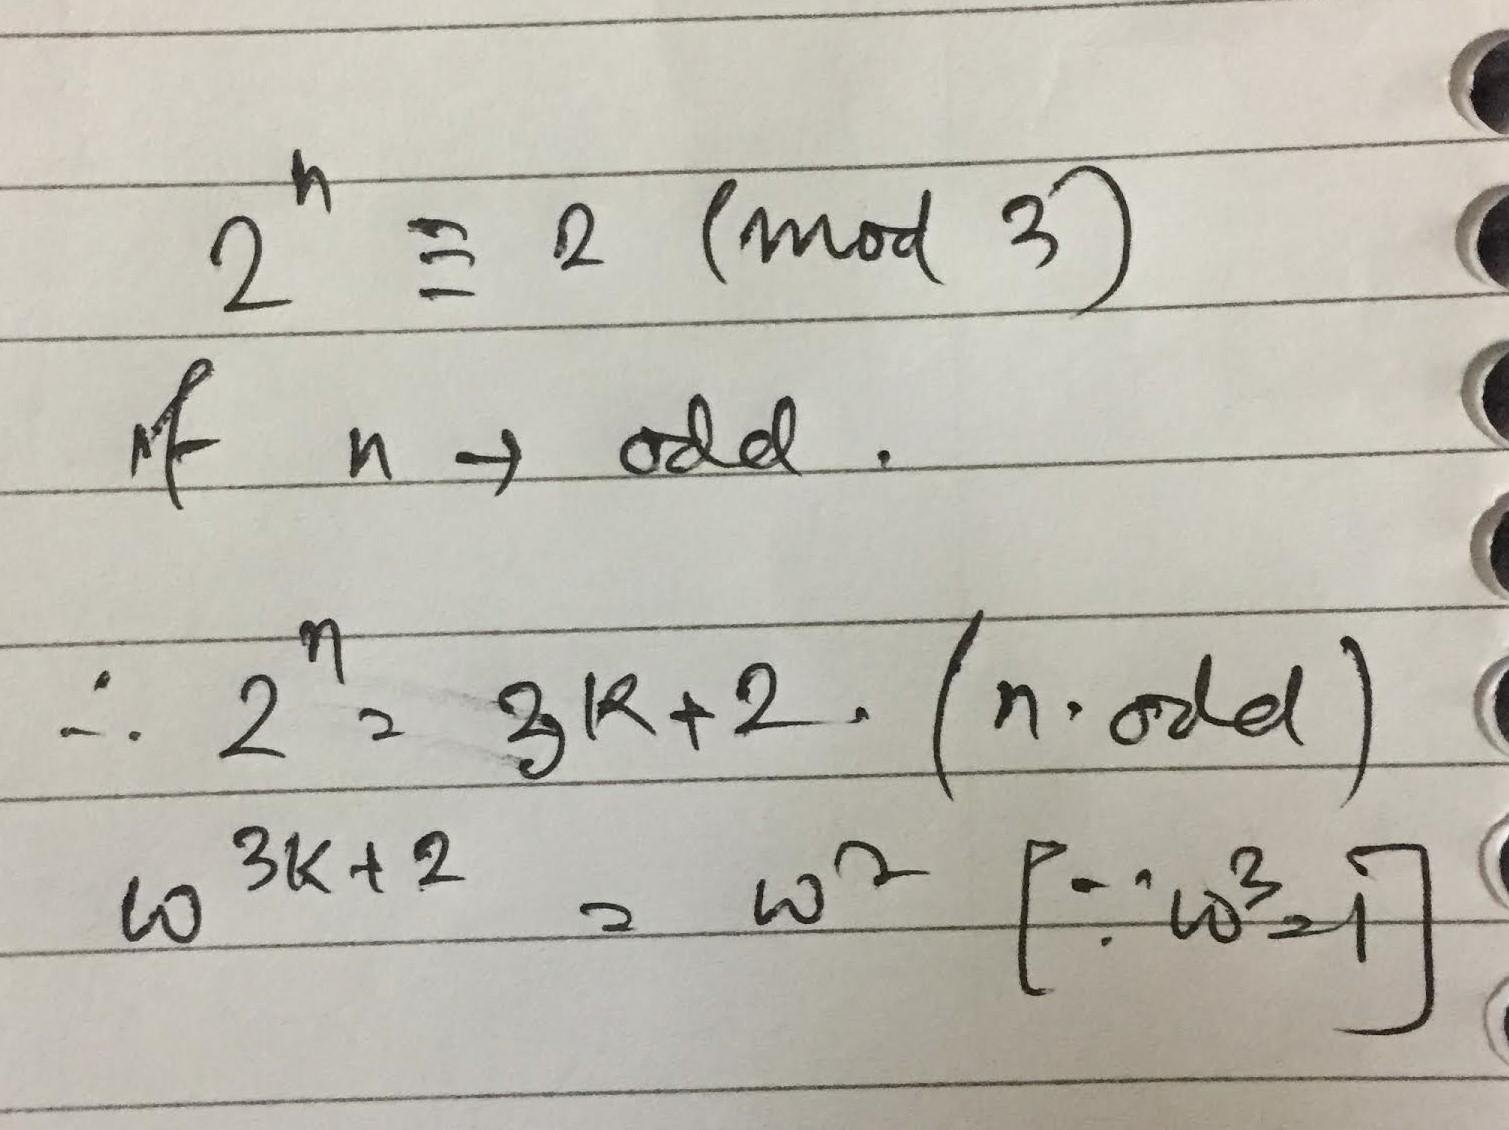 2^n ≡ 2 (mod 3)
if n → odd.
∴ 2^n = 3k+2. (n. odd)
ω^{3k+2} = ω^2 [∵ ω^3=1]